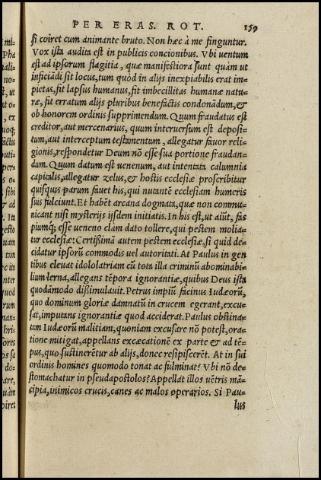 PER ERAS. ROT. 159
si coiret cum animante bruto. Non hæc à me finguntur.
Vox ista audita est in publicis concionibus. Vbi uentum
est ad ipsorum flagitia, quæ manifestiora sunt quàm ut
inficiādi sit locus, tum quòd in alijs inexpiabilis erat im
pietas, fit lapsus humanus, fit imbecillitas humanæ natu
ræ, fit erratum alijs pluribus benefactis condonādum, &
ob honorem ordinis supprimendum. Quum fraudatus est
creditor, aut mercenarius, quum interuersum est deposi
tum, aut interceptum testamentum, allegatur fauor reli
gionis, respondetur Deum nō esse sua portione fraudan
dam. Quum datum est uenenum, aut intentata calumnia
capitalis, allegatur zelus, & hostis ecclesiæ proscribitur
quisquis parum fauet his, qui nutantē ecclesiam humeris
suis fulciunt. Et habēt arcana dogmata, quæ non commu
nicant nisi mysterijs ijsdem initiatis. In his est, ut aiūt, fas
piumq; esse ueneno clam dato tollere, qui pestem molia-
tur ecclesiæ: Certissimā autem pestem ecclesiæ, si quid de
cidatur ipsorū commodis uel autoritati. At Paulus in gen
tibus eleuat idololatriam cū tota illa criminū abominabi
lium lerna, allegans tēpora ignorantiæ, quibus Deus ista
quodāmodo dissimulauit. Petrus impiū facinus Iudæorū,
quo dominum gloriæ damnatū in crucem egerant, excu-
sat, imputans ignorantiæ quod acciderat. Paulus obstina-
tam Iudæorū malitiam, quoniam excusare nō potest, ora-
tione mitigat, appellans excæcationē ex parte & ad tē-
pus, quo sustinerētur ab alijs, donec resipiscerēt. At in sui
ordinis homines quomodo tonat ac fulminat? Vbi nō de-
stomachatur in pseudapostolos? Appellat illos uētris mā-
cipia, inimicos crucis, canes ac malos operarios. Si Pau-
lus